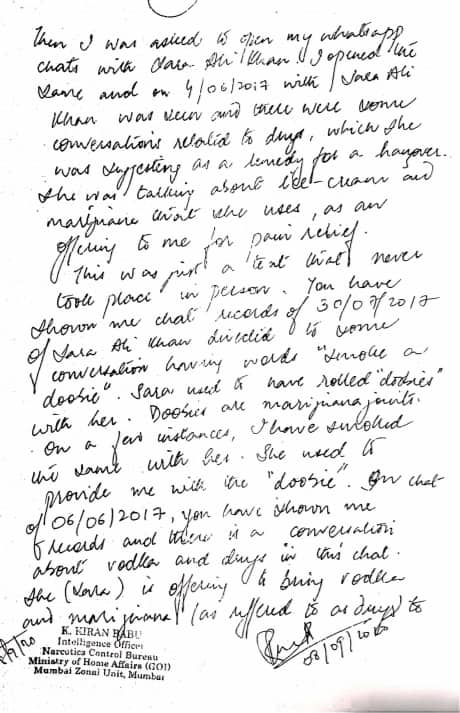 Then I was asked to open my whatsapp
chats with Sara Ali Khan. I opened the
same and on 4/06/2017 with Sara Ali
Khan was seen and there were some
conversations related to drugs, which she
was suggesting as a remedy for a hangover.
She was talking about ice-cream and
marijuana that she uses, as an
offering to me for pain relief.
This was just a text that never
took place in person. You have
shown me chat records of 30/07/2017
of Sara Ali Khan directed to some
conversation having words "smoke a
doobie". Sara used to have rolled "doobies"
with her. Doobies are marijuana joints.
On a few instances, I have smoked
the same with her. She used to
provide me with the "doobie". On chat
of 06/06/2017, you have shown me
records and there is a conversation
about vodka and drugs in this chat.
She (Sara) is offering to bring vodka
and marijuana (as reffered to as drugs) to
K. KIRAN BABU
Intelligence Officer
Narcotics Control Bureau
Ministry of Home Affairs (GOI)
Mumbai Zonal Unit, Mumbai
08/09/2020